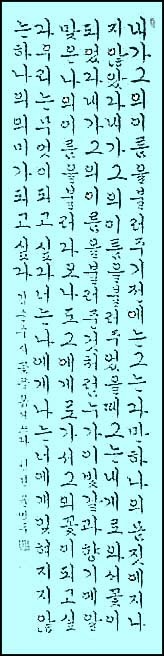 내가그의이름을불러주기전에는그는다만하나의몸짓에지나
지않았다내가그의이름을불러주었을때그는내게로와서꽃이
되었다내가그의이름을불러준것처럼누가이빛깔과향기에알
맞은나의이름을불러다오나도그에게로가서그의꽃이되고싶
다우리는무엇이되고싶다너는나에게나는너에게잊혀지지않
는하나의의미가되고싶다
김춘수